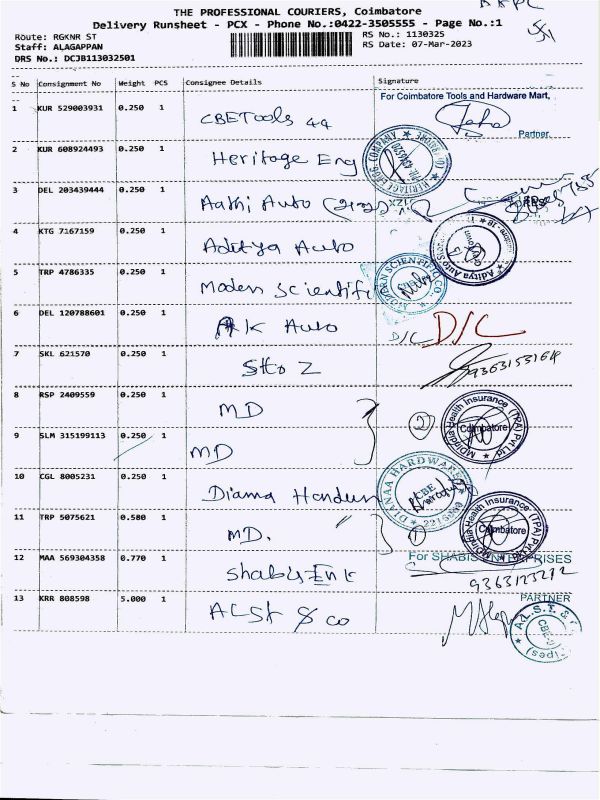 THE PROFESSIONAL COURIERS, Coimbatore
Delivery Runsheet - PCX - Phone No.:0422-3505555 - Page No.:1
Route: RGKNR ST
RS No.: 1130325
Staff: ALAGAPPAN
RS Date: 07-Mar-2023
DRS No.: DCJB113032501
S No Consignment No Weight PCS Consignee Details Signature
For Coimbatore Tools and Hardware Mart,
1 KUR 529003931 0.250 1 CBETools 44
Partner.
2 KUR 608924493 0.250 1 Heritage Eng
HERITAGE ENGG COMPANY
3 DEL 203439444 0.250 1 Aathi Auto
4 KTG 7167159 0.250 1 Aditya Auto
Aditya Auto
5 TRP 4786335 0.250 1 Modern Scientific
MODERN SCIENTIFIC CO.
6 DEL 120788601 0.250 1 AK Auto D/C D/C
7 SKL 621570 0.250 1
8 RSP 2409559 0.250 1 MD
2
MDIndia Health Insurance (TPA) Pvt Ltd
Coimbatore
9 SLM 315199113 0.250 1 MD
10 CGL 8005231 0.250 1 Diama
DIANAA HARDWARE
CBE
11 TRP 5075621 0.580 1 MD.
1
MDIndia Health Insurance (TPA) Pvt Ltd
Coimbatore
12 MAA 569304358 0.770 1
For SHABIS ENTERPRISES
PARTNER
13 KRR 808598 5.000 1 ALST & Co
A.L.S.T. &